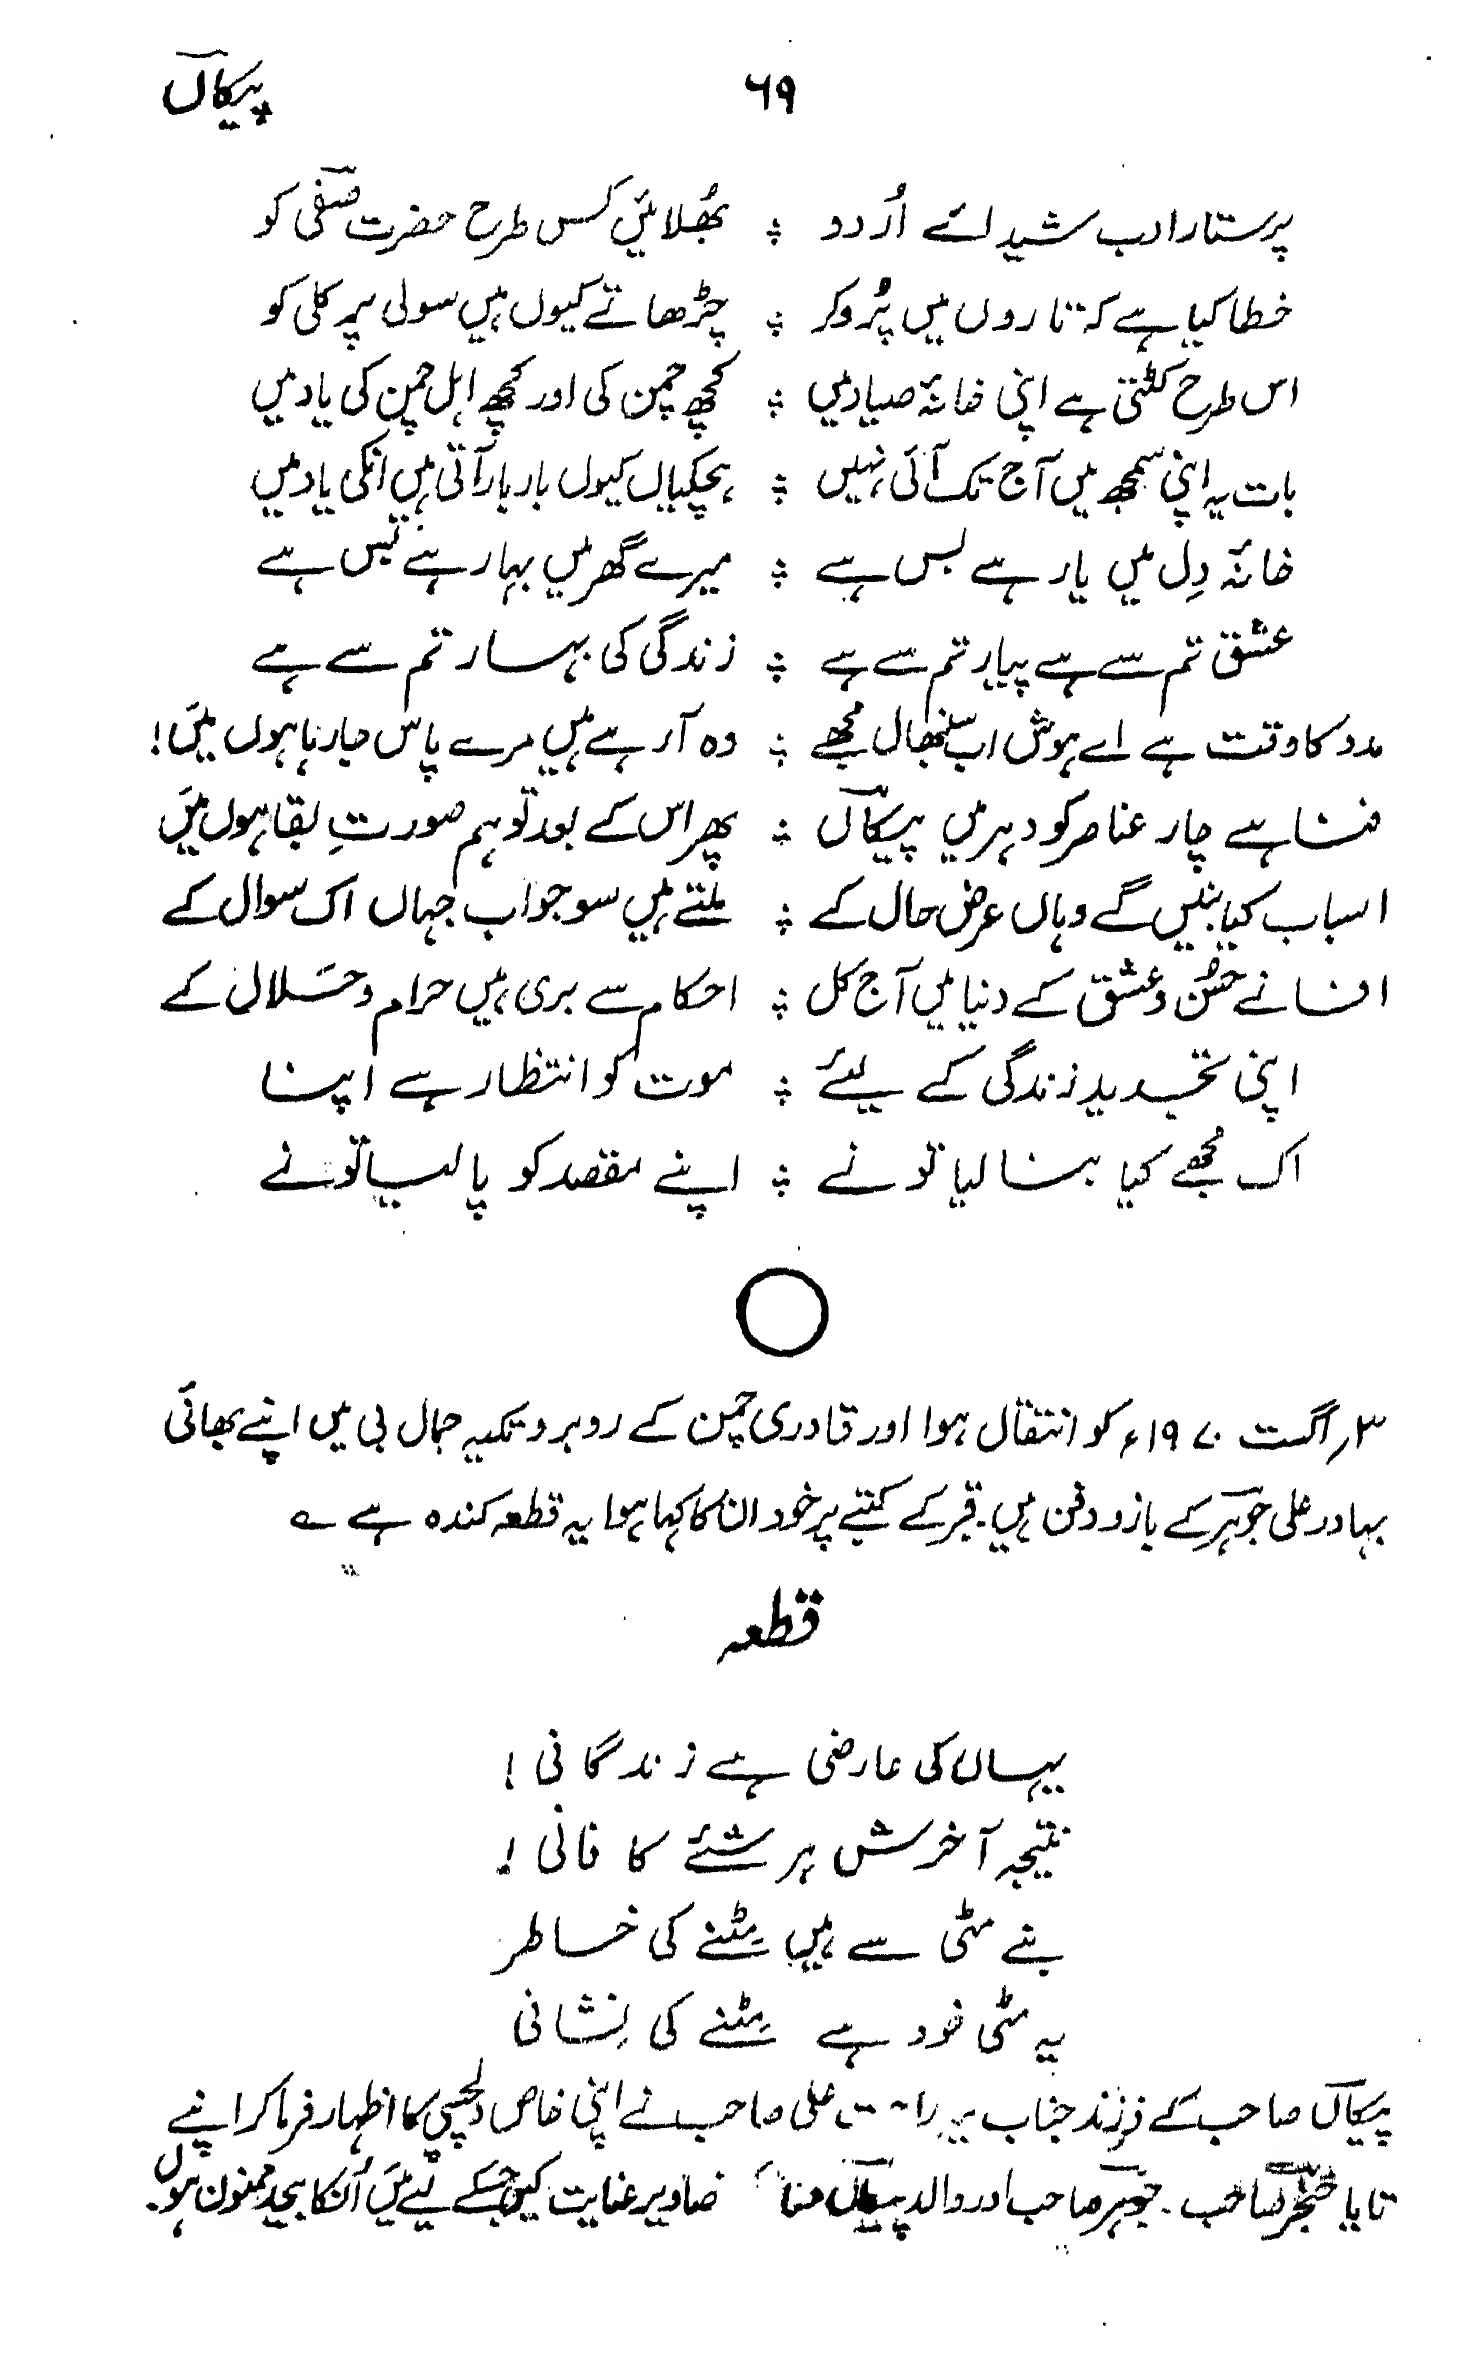 پیکاںؔ ۶۹
پرستارِ ادب شیدائے اُردو ؛ بھُلائیں کس طرح حضرت صفیؔ کو
خطا کیا ہے کہ تاروں میں پُرو کر ؛ چڑھاتے کیوں ہیں سولی پر کلی کو
اس طرح کٹتی ہے اپنی خانۂ صیاد میں ؛ کچھ چمن کی اور کچھ اہل چمن کی یاد میں
بات یہ اپنی سمجھ میں آج تک آئی نہیں ؛ ہچکیاں کیوں بار بار آتی ہیں انکی یاد میں
خانۂ دِل میں یار ہے بس ہے ؛ میرے گھر میں بہار ہے بس ہے
عشق تم سے ہے پیار تم سے ہے ؛ زندگی کی بہار تم سے ہے
مدد کا وقت ہے اے ہوش اب سنبھال مجھے ؛ وہ آرہے ہیں مرے پاس جا رہا ہوں میَں!
فنا ہے چار عناصر کو دہر میں پیکاںؔ ؛ پھر اس کے بعد تو ہم صورتِ بقا ہوں میَں
اسباب کیا بنیں گے وہاں عرض حال کے ؛ ملتے ہیں سو جواب جہاں اک سوال کے
افسانے حسُن و عشق کے دنیا میں آج کل ؛ احکام سے بری ہیں حرام و حَلال کے
اپنی تجدید زندگی کے لیئے ؛ موت کو انتظار ہے اپنا
اک مُجھے کیا بنا لیا تو نے ؛ اپنے مقصد کو پا لیا تو نے
۳؍اگست ۱۹۷۰ء کو انتقال ہوا اور قادری چمن کے روبرو تکیہ جمال بی میں اپنے بھائی
بہادر علی جوہرؔ کے بازو دفن ہیں۔ قبر کے کتبے پر خود ان کا کہا ہوا یہ قطعہ کندہ ہے ؎
قطعہ
یہاں کی عارضی ہے زندگانی!
نتیجہ آخرش ہر شئے کا فانی!
بنے مٹی سے ہیں مِٹنے کی خاطر
یہ مٹی خود ہے مِٹنے کی نِشانی
پیکاںؔ صاحب کے فرزند جناب علی صاحب نے اپنی خاص دلچسپی کا اظہار فرما کر اپنے
تایا خنجرؔ صاحب۔ جوہرؔ صاحب اور والد پیکاںؔ عنایت کیں جسکے لیے میَں اُنکا بیحد ممنون ہوں۔